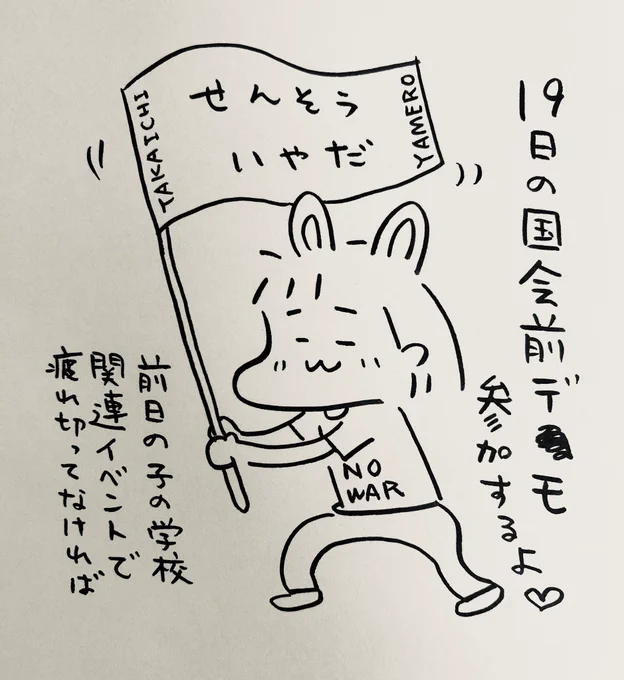 19日の国会前デモ
参加するよ♡
TAKAICHI
せんそう
いやだ
YAMERO
NO
WAR
前日の子の学校
関連イベントで
疲れ切ってなければ